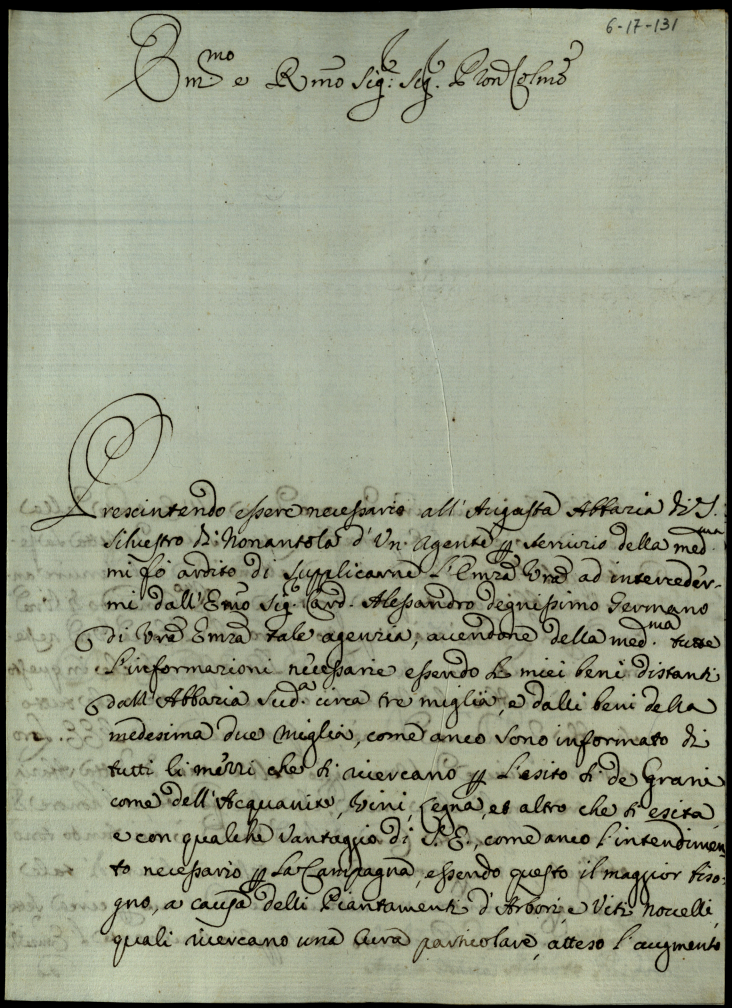 6-17-131
Em.mo e R.mo Sig: Sig. P.ron Col.mo
Presentendo essere necessario all'Augusta Abbazia di S.
Silvestro di Nonantola d'Un Agente p servizio della med.ma
mi fò ardito di supplicarne L'Emza Vra ad interceder-
mi dall'Emo Sig. Card. Alessandro degnissimo Germano
di Vra Emza tale agenzia, avendone della med.ma tutte
L'informazioni necessarie essendo li miei beni distanti
dall'Abbazia sud.a circa tre miglia, e dalli beni della
medesima due miglia, come anco sono informato di
tutti li mezzi che si ricercano p L'esito sì de Grani
come dell'Acquavite, Vini, Legna, et altro che si esita
e con qualche Vantaggio di S. E., come anco l'intendimen
to necessario p La Campagna, essendo questo il maggior biso-
gno, a causa delli Piantamenti d'Arbori, e Viti novelli,
quali ricercano una cura particolare, atteso l'augmento